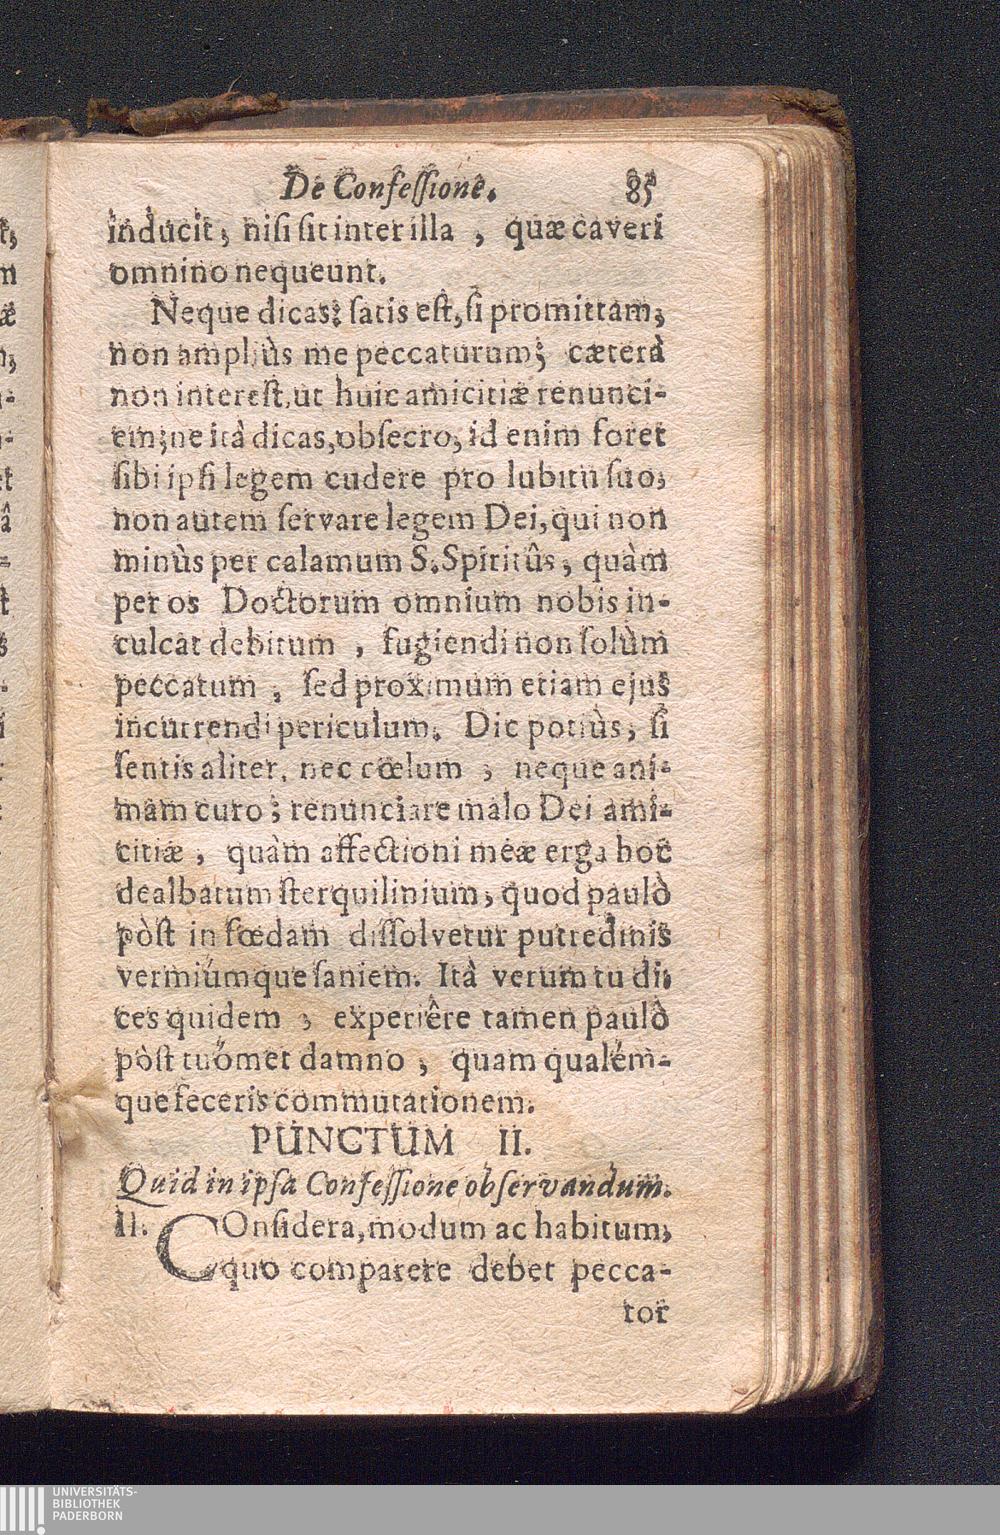 De Confessione. 85
inducit; nisi sit inter illa, quæ caveri
omnino nequeunt.
Neque dicas; satis est, si promittam,
non ampliùs me peccaturum; cæterà
non interest, ut huic amicitiæ renunci-
em; ne ità dicas, obsecro, id enim foret
sibi ipsi legem cudere pro lubitu suo;
non autem servare legem Dei, qui non
minùs per calamum S. Spiritûs, quàm
per os Doctorum omnium nobis in-
culcat debitum, fugiendi non solùm
peccatum, sed proximum etiam ejus
incurrendi periculum. Dic potiùs, si
sentis aliter, nec cœlum, neque ani-
mam curo; renunciare malo Dei ami-
citiæ, quàm affectioni meæ erga hoc
dealbatum sterquilinium, quod paulò
pòst in fœdam dissolvetur putredinis
vermiúmque saniem. Ità verum tu di-
ces quidem, experiêre tamen paulò
pòst tuómet damno, quam qualém-
que feceris commutationem.
PUNCTUM II.
Quid in ipsa Confessione observandum.
II. COnsidera, modum ac habitum,
quo comparere debet pecca-
tor
UNIVERSITÄTS-
BIBLIOTHEK
PADERBORN